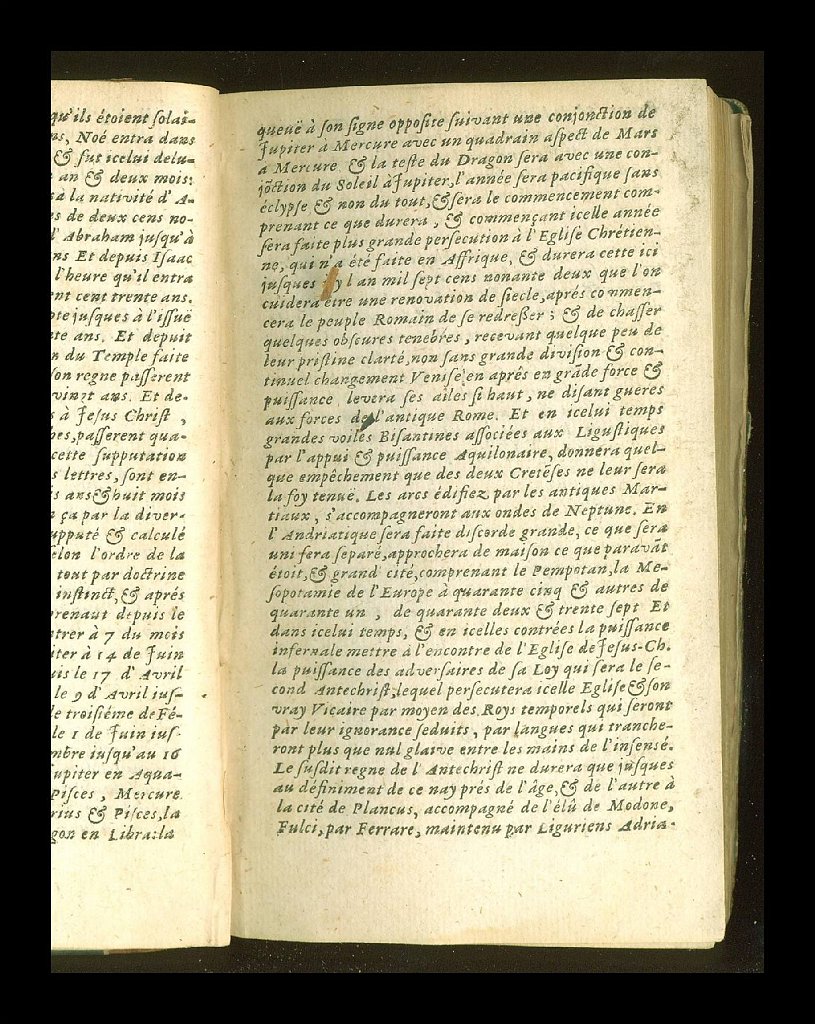 qu'ils étoient solai-
ns, Noé entra dans
& fut icelui delu-
an & deux mois:
à la nativité d'A-
s de deux cens no-
l'Abraham jusqu'à
ns Et depuis Isaac
l'heure qu'il entra
nt cent trente ans.
te jusques à l'issuë
te ans. Et depuit
n du Temple faite
son regne passerent
vingt ans. Et de-
s à Jesus Christ,
bes, passerent qua-
cette supputation
s lettres, sont en-
s ans & huit mois
n ça par la diver-
upputé & calculé
elon l'ordre de la
tout par doctrine
instinct, & aprés
prenaut depuis le
trer à 7 du mois
iter à 14 de Juin
uis le 17 d'Avril
le 9 d'Avril jus-
le troisiéme de Fé-
le 1 de Juin jus-
mbre jusqu'au 16
upiter en Aqua-
Pisces, Mercure
rius & Pisces, la
gon en Libra: la
queuë à son signe opposite suivant une conjonction de
Jupiter a Mercure avec un quadrain aspect de Mars
a Mercure & la teste du Dragon sera avec une con-
jõction du Soleil à Jupiter, l'année sera pacifique sans
éclypse & non du tout, & sera le commencement com-
prenant ce que durera, & commençant icelle année
sera faite plus grande persecution à l'Eglise Chrétien-
ne, qui n'a été faite en Affrique, & durera cette ici
jusques y l an mil sept cens nonante deux que l'on
cuidera être une renovation de siecle, aprés commen-
cera le peuple Romain de se redresser; & de chasser
quelques obscures tenebres, recevant quelque peu de
leur pristine clarté, non sans grande division & con-
tinuel changement Venise en aprés en grãde force &
puissance levera ses ailes si haut, ne disant gueres
aux forces de l'antique Rome. Et en icelui temps
grandes voiles Bisantines associées aux Ligustiques
par l'appui & puissance Aquilonaire, donnera quel-
que empêchement que des deux Cretẽses ne leur sera
la foy tenuë. Les arcs édifiez par les antiques Mar-
tiaux, s'accompagneront aux ondes de Neptune. En
l'Andriatique sera faite discorde grande, ce que sera
uni sera separé, approchera de maison ce que paravãt
étoit, & grand cité, comprenant le Pempotan, la Me-
sopotamie de l'Europe à quarante cinq & autres de
quarante un, de quarante deux & trente sept Et
dans icelui temps, & en icelles contrées la puissance
infernale mettre à l'encontre de l'Eglise de Jesus-Ch.
la puissance des adversaires de sa Loy qui sera le se-
cond Antechrist, lequel persecutera icelle Eglise & son
vray Vicaire par moyen des Roys temporels qui seront
par leur ignorance seduits, par langues qui tranche-
ront plus que nul glaive entre les mains de l'insensé.
Le susdit regne de l'Antechrist ne durera que jusques
au définiment de ce nay prés de l'âge, & de l'autre à
la cité de Plancus, accompagné de l'élû de Modone,
Fulci, par Ferrare, maintenu par Liguriens Adria-